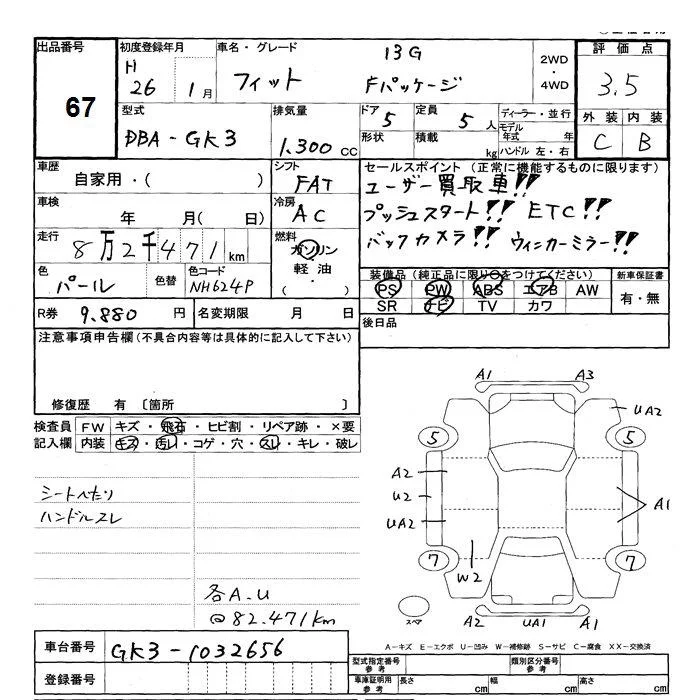 出品番号
67
初度登録年月
H
26 1月
車名・グレード
13G
フィット Fパッケージ
2WD
・
4WD
評価点
3.5
外装 内装
C B
型式
DBA-GK3
排気量
1.300 CC
ドア
5
定員
5 人
形状
積載
kg
ディーラー・並行
モデル
年式 年
ハンドル 左・右
車歴
自家用・( )
シフト
FAT
車検
年 月( 日)
冷房
AC
セールスポイント (正常に機能するものに限ります)
ユーザー買取車!!
プッシュスタート!! ETC!!
バックカメラ!! ウィンカーミラー!!
走行
8万2千471 km
燃料
ガソリン
軽油・
( )
色
パール
色替
色コード
NH624P
装備品 (純正品に限り○をつけてください)
PS PW ABS エアB AW
SR ナビ TV カワ
新車保証書
有・無
R券 9.880 円
名変期限 月 日
後日品
注意事項申告欄 (不具合内容等は具体的に記入して下さい)
修復歴 有 〔箇所 〕
検査員
記入欄
FW キズ・飛石・ヒビ割・リペア跡・×要
内装 キズ・汚れ・コゲ・穴・スレ・キレ・破レ
シートへたり
ハンドルスレ
各A.U
@82.471km
A1 A3
UA2
5 5
A2
U2
UA2
A1
7 7
W2
スペア
A2 UA1 A1
A-キズ E-エクボ U-凹み W-補修跡 S-サビ C-腐食 XX-交換済
車台番号 GK3-1032656
登録番号
型式指定番号
参考
類別区分番号
参考
車庫証明用
参考
長さ cm 幅 cm 高さ cm